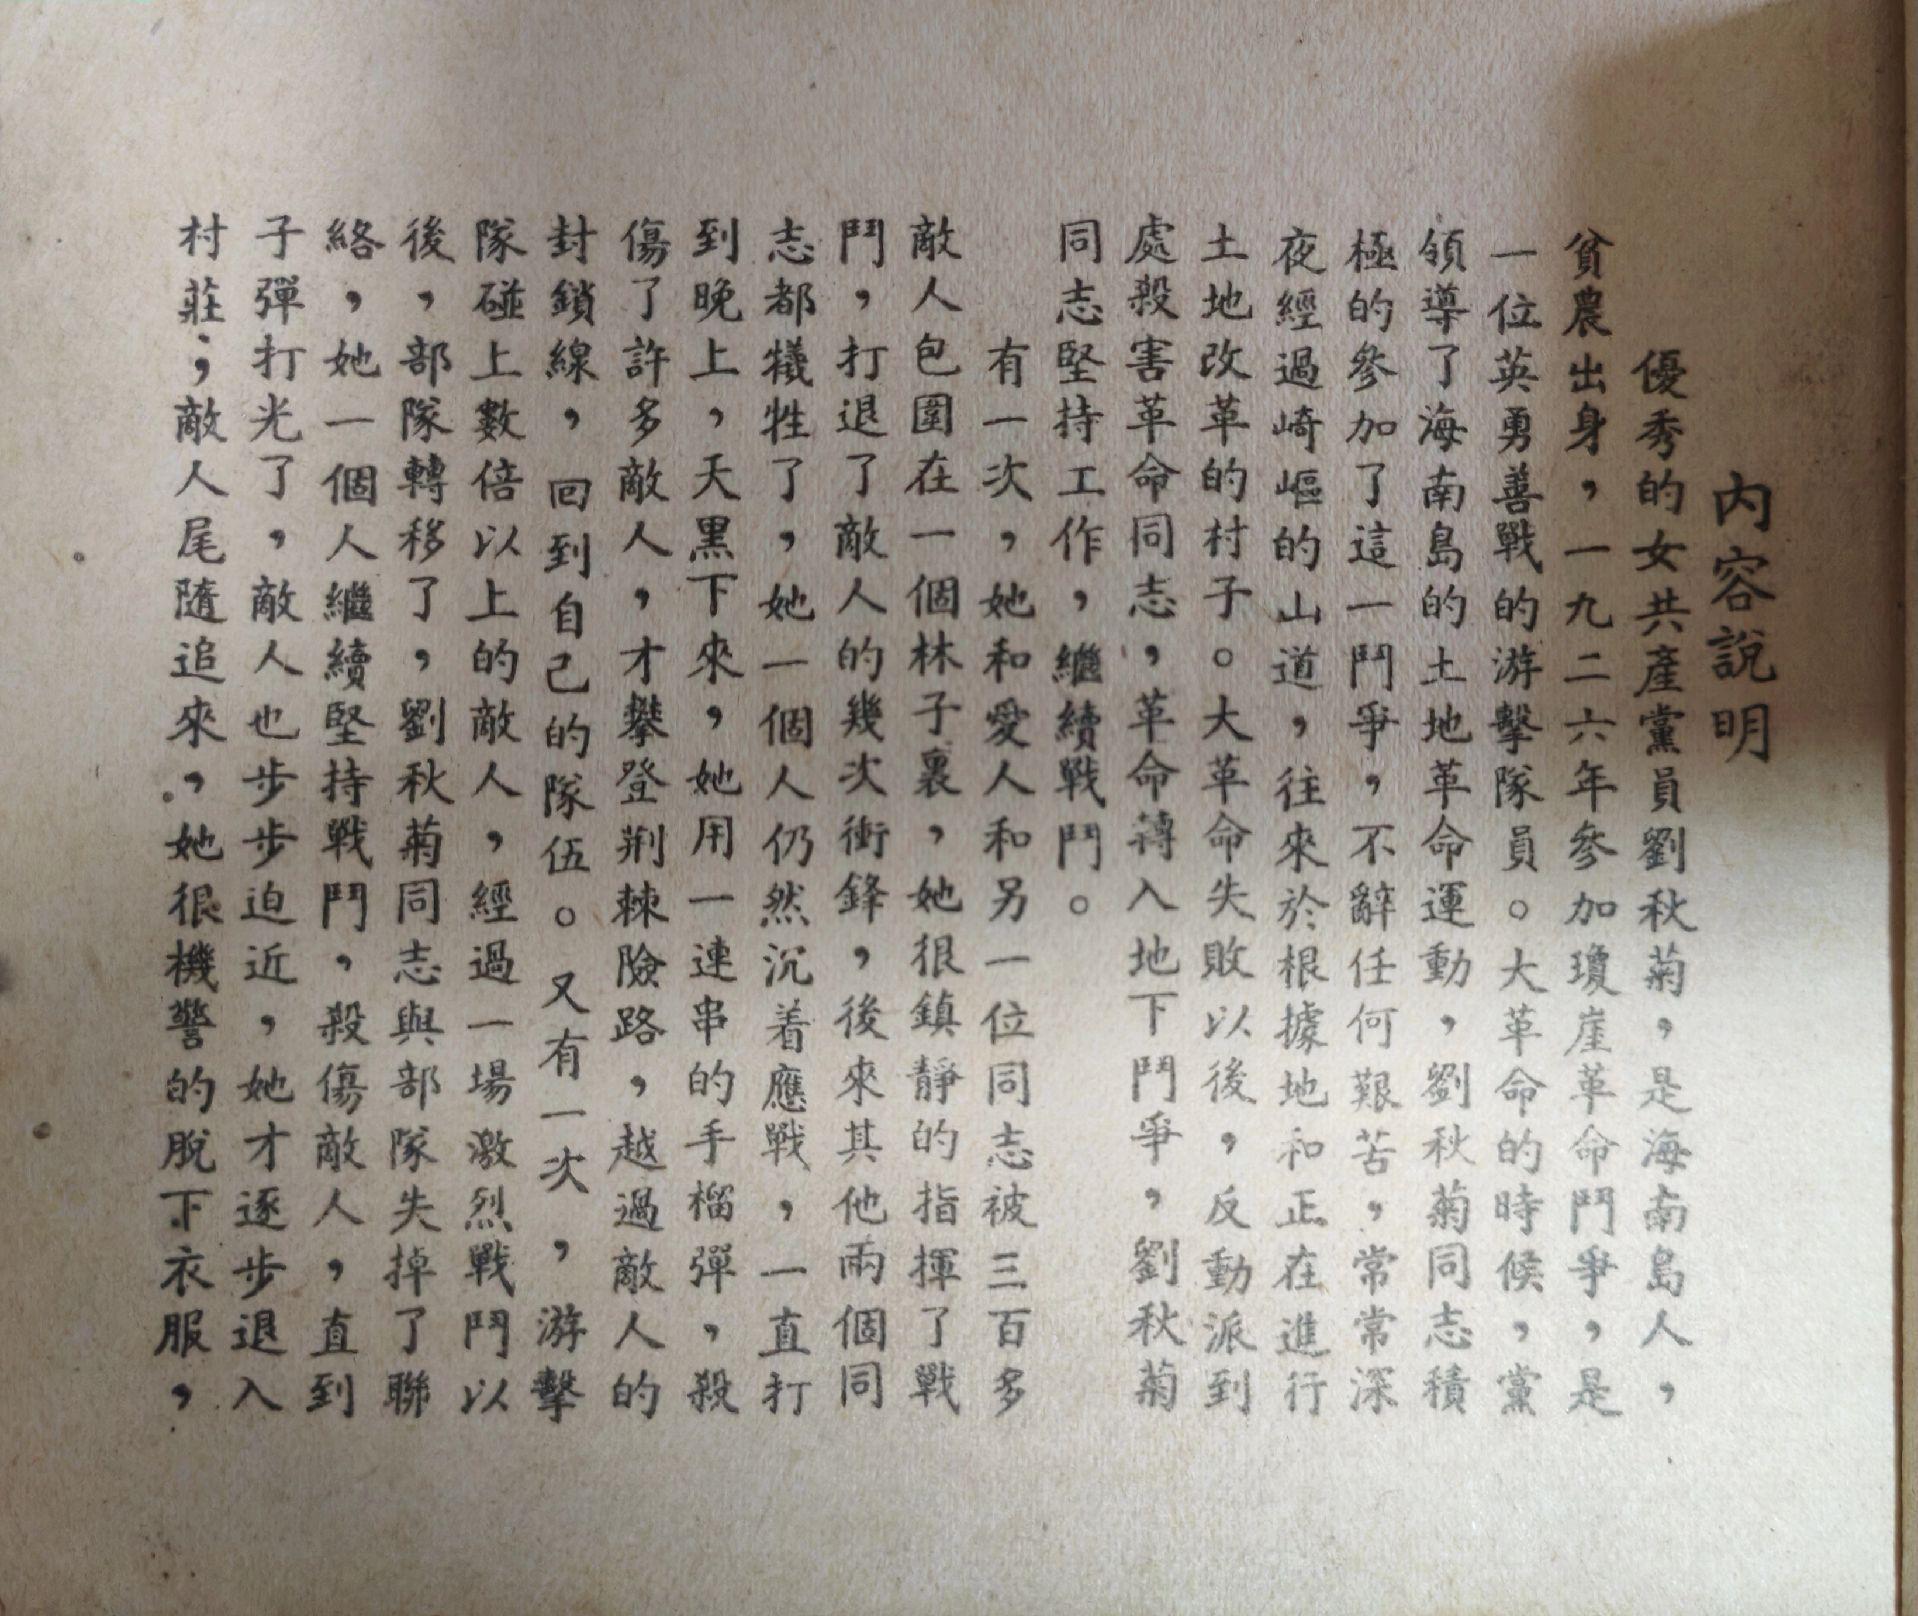 內容說明
優秀的女共產黨員劉秋菊，是海南島人，
貧農出身，一九二六年參加瓊崖革命鬥爭，是
一位英勇善戰的游擊隊員。大革命的時候，黨
領導了海南島的土地革命運動，劉秋菊同志積
極的參加了這一鬥爭，不辭任何艱苦，常常深
夜經過崎嶇的山道，往來於根據地和正在進行
土地改革的村子。大革命失敗以後，反動派到
處殺害革命同志，革命轉入地下鬥爭，劉秋菊
同志堅持工作，繼續戰鬥。
有一次，她和愛人和另一位同志被三百多
敵人包圍在一個林子裏，她很鎮靜的指揮了戰
鬥，打退了敵人的幾次衝鋒，後來其他兩個同
志都犧牲了，她一個人仍然沉着應戰，一直打
到晚上，天黑下來，她用一連串的手榴彈，殺
傷了許多敵人，才攀登荆棘險路，越過敵人的
封鎖線，回到自己的隊伍。又有一次，游擊
隊碰上數倍以上的敵人，經過一場激烈戰鬥以
後，部隊轉移了，劉秋菊同志與部隊失掉了聯
絡，她一個人繼續堅持戰鬥，殺傷敵人，直到
子彈打光了，敵人也步步迫近，她才逐步退入
村莊；敵人尾隨追來，她很機警的脫下衣服，